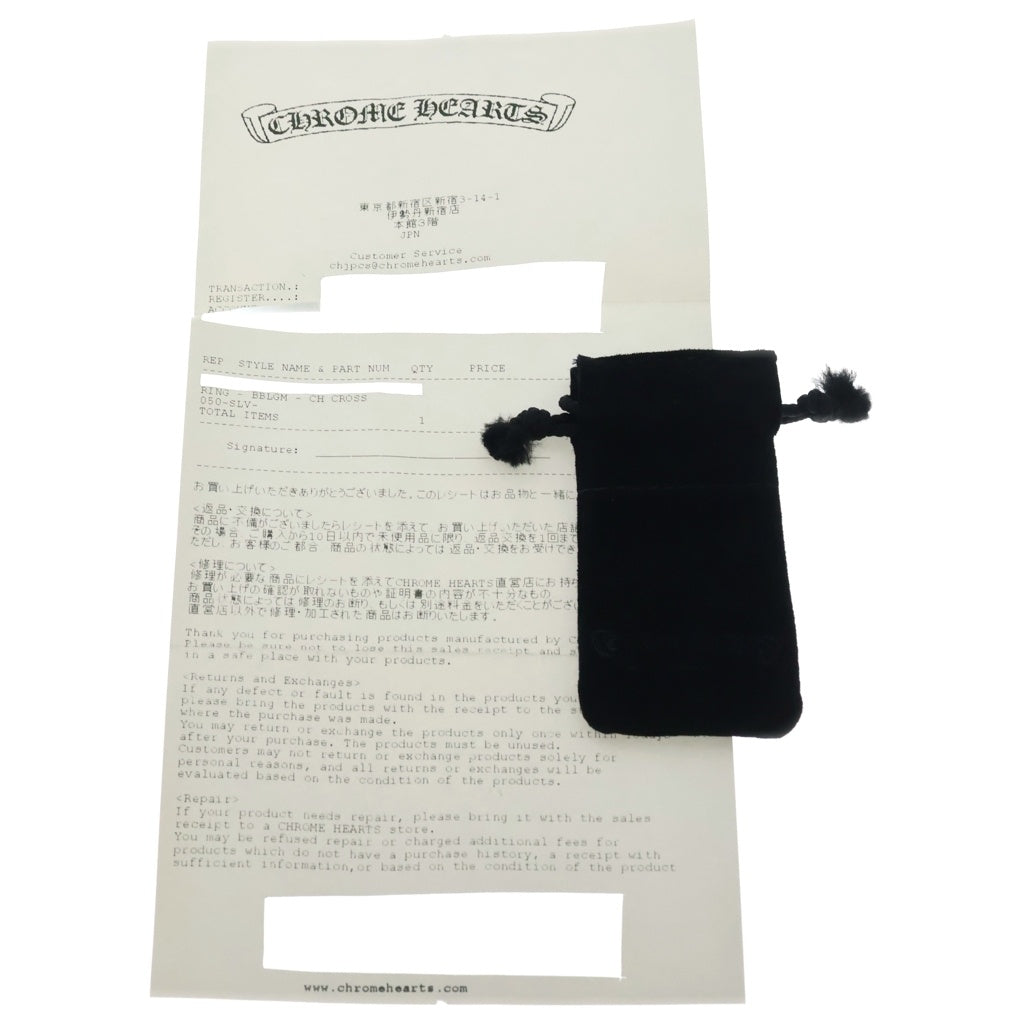 CHROME HEARTS
東京都新宿区新宿3-14-1
伊勢丹新宿店
本館3階
JPN
Customer Service
chjpcs@chromehearts.com
TRANSACTION.:
REGISTER....:
REP STYLE NAME & PART NUM QTY PRICE
RING - BBLGM - CH CROSS
050-SLV-
TOTAL ITEMS 1
Signature:
お買い上げいただきありがとうございました。このレシートはお品物と一緒に
<返品・交換について>
商品に不備がございましたらレシートを添えて お買い上げいただいた店舗
その場合 ご購入から10日以内で未使用品に限り 返品交換を1回まで
ただし お客様のご都合 商品の状態によっては 返品・交換をお受けでき
<修理について>
修理が必要な商品にレシートを添えてCHROME HEARTS直営店にお持ち
お買い上げの確認が取れないものや証明書の内容が不十分なもの
商品状態によっては修理のお断り、もしくは別途料金をいただくことがござい
直営店以外で修理・加工された商品はお断りいたします.
Thank you for purchasing products manufactured by
Please be sure not to lose this sales receipt and
in a safe place with your products.
<Returns and Exchanges>
If any defect or fault is found in the products you
please bring the products with the receipt to the
where the purchase was made.
You may return or exchange the products only once within
after your purchase. The products must be unused.
Customers may not return or exchange products solely for
personal reasons, and all returns or exchanges will be
evaluated based on the condition of the products.
<Repair>
If your product needs repair, please bring it with the sales
receipt to a CHROME HEARTS store.
You may be refused repair or charged additional fees for
products which do not have a purchase history, a receipt with
sufficient information,or based on the condition of the product
www.chromehearts.com